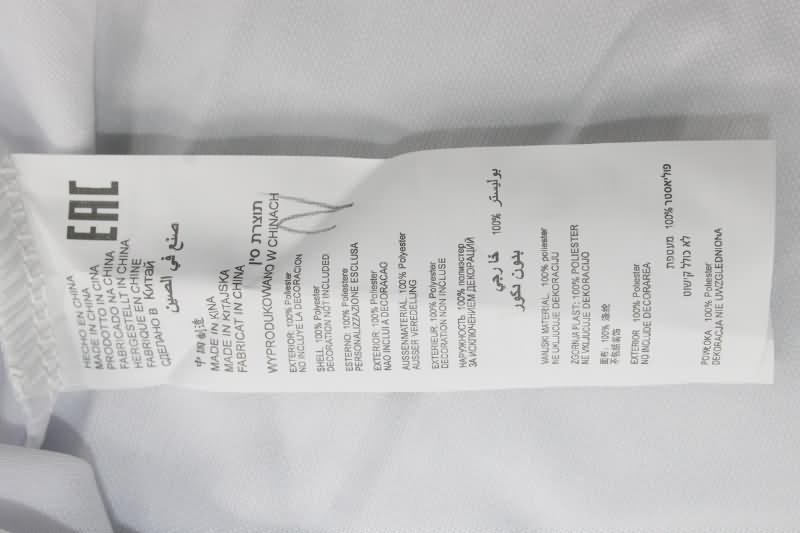 EAC
HECHO EN CHINA
MADE IN CHINA
PRODOTTO IN CINA
FABRICADO NA CHINA
FABRICADO IN CHINA
HERGESTELLT IN CHINA
FABRIQUÉ EN CHINE
СДЕЛАНО В КИТАЙ
صنع في الصين
中国制造
MADE IN KINA
MADE IN KITAJSKA
FABRICAT IN CHINA
תוצרת סין
WYPRODUKOWANO W CHINACH
EXTERIOR: 100% Poliester
NO INCLUYE LA DECORACION
SHELL: 100% Polyester
DECORATION NOT INCLUDED
ESTERNO: 100% Poliestere
PERSONALIZZAZIONE ESCLUSA
EXTERIOR: 100% Poliester
NAO INCLUI A DECORACAO
AUSSENMATERIAL: 100% Polyester
AUSSER VEREDELUNG
EXTERIEUR: 100% Polyester
DECORATION NON INCLUSE
НАРУЖНОСТЬ: 100% полиэстер
ЗА ИСКЛЮЧЕНИЕМ ДЕКОРАЦИЙ
خارجي 100% بوليستر
بدون دكور
VANJSKI MATERIJAL: 100% poliester
NE UKLJUCUJE DEKORACIJU
ZGORNJA PLAST: 100% POLIESTER
NE VKLJUCUJE DEKORACIJO
面布: 100% 涤纶
不包括装饰
EXTERIOR: 100% Poliester
NO INCLUDE DECORAREA
מעטפת 100% פוליאסטר
לא כולל קישוט
POWŁOKA: 100% Poliester
DEKORACJA NIE UWZGLEDNIONA